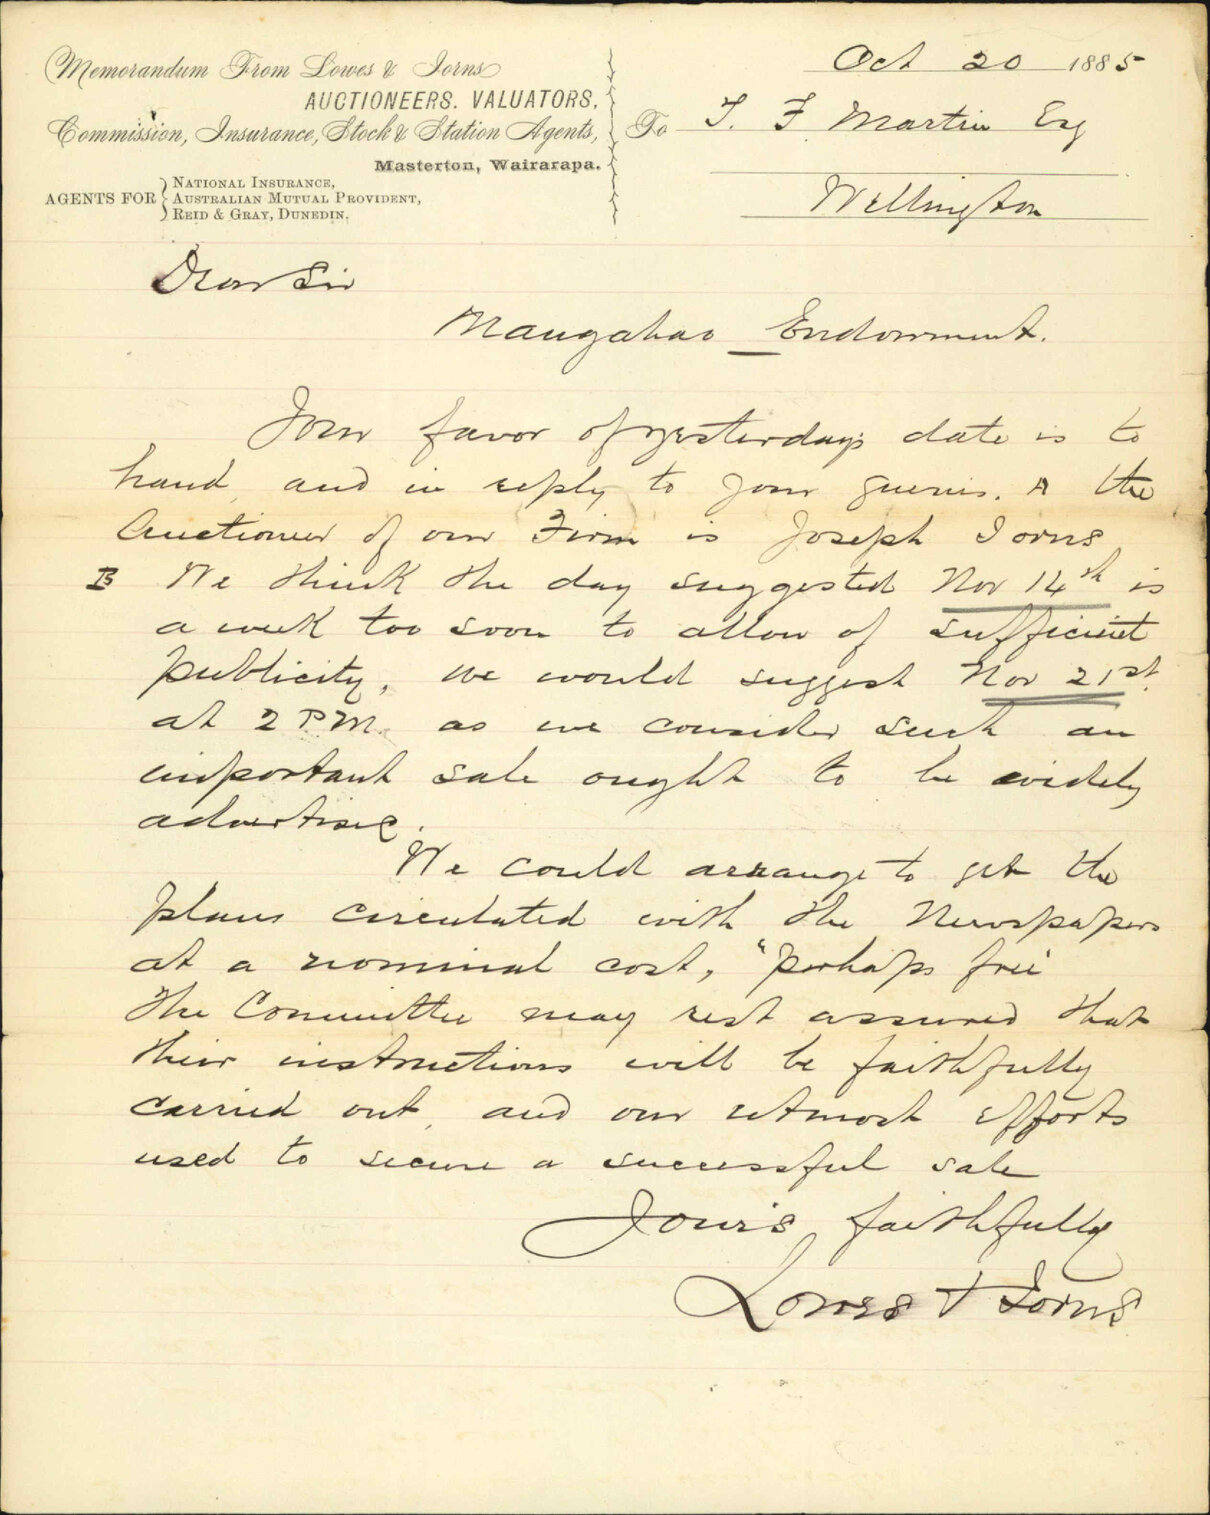 Memorandum From Lowes & Iorns
AUCTIONEERS. VALUATORS,
Commission, Insurance, Stock & Station Agents,
Masterton, Wairarapa.
AGENTS FOR
NATIONAL INSURANCE,
AUSTRALIAN MUTUAL PROVIDENT,
REID & GRAY, DUNEDIN.
Oct 20 1885
To T. F Martin Esq
Wellington
Dear Sir
Mangahao Endowment.
Your favor of yesterdays date is to
hand, and in reply to your queries. A the
Auctioneer of our Firm is Joseph Iorns
B We think the day suggested Nov 14th is
a week too soon to allow of sufficient
publicity, we would suggest Nov 21st.
at 2 P.M. as we consider such an
important sale ought to be widely
advertised.
We could arrange to get the
plans circulated with the Newspapers
at a nominal cost, "perhaps free"
The Committee may rest assured that
their instructions will be faithfully
carried out, and our utmost efforts
used to secure a successful sale
Yours faithfully
Lowes & Iorns